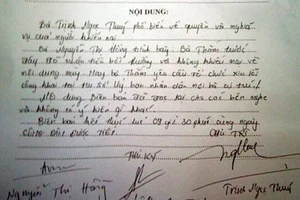 NỘI DUNG:
Bà Trịnh Ngọc Thuý phổ biến về quyền và nghĩa
vụ của người khiếu nại
Bà Nguyễn Thị Hồng trình bày: Bà Thắm trước
đây đã nhận tiền bồi thường và không khiếu nại về
nội dung này. Nay bà Thắm yêu cầu tổ chức xin lỗi
công khai tại trụ sở Uỷ ban nhân dân nơi bà cư trú
Nội dung biên bản đã đọc lại cho các bên nghe
và không có ý kiến gì khác
Biên bản kết thúc lúc 09 giờ 30 phút cùng ngày
CHỦ TRÌ
THƯ KÝ
Nguyễn Thị Hồng
Trịnh Ngọc Thuý